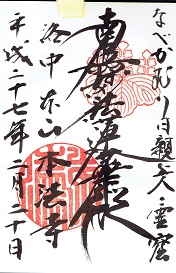 なべかむり日親上人霊窟
南無妙法蓮華経
洛中 本山 本法寺
平成二十七年二月二十日